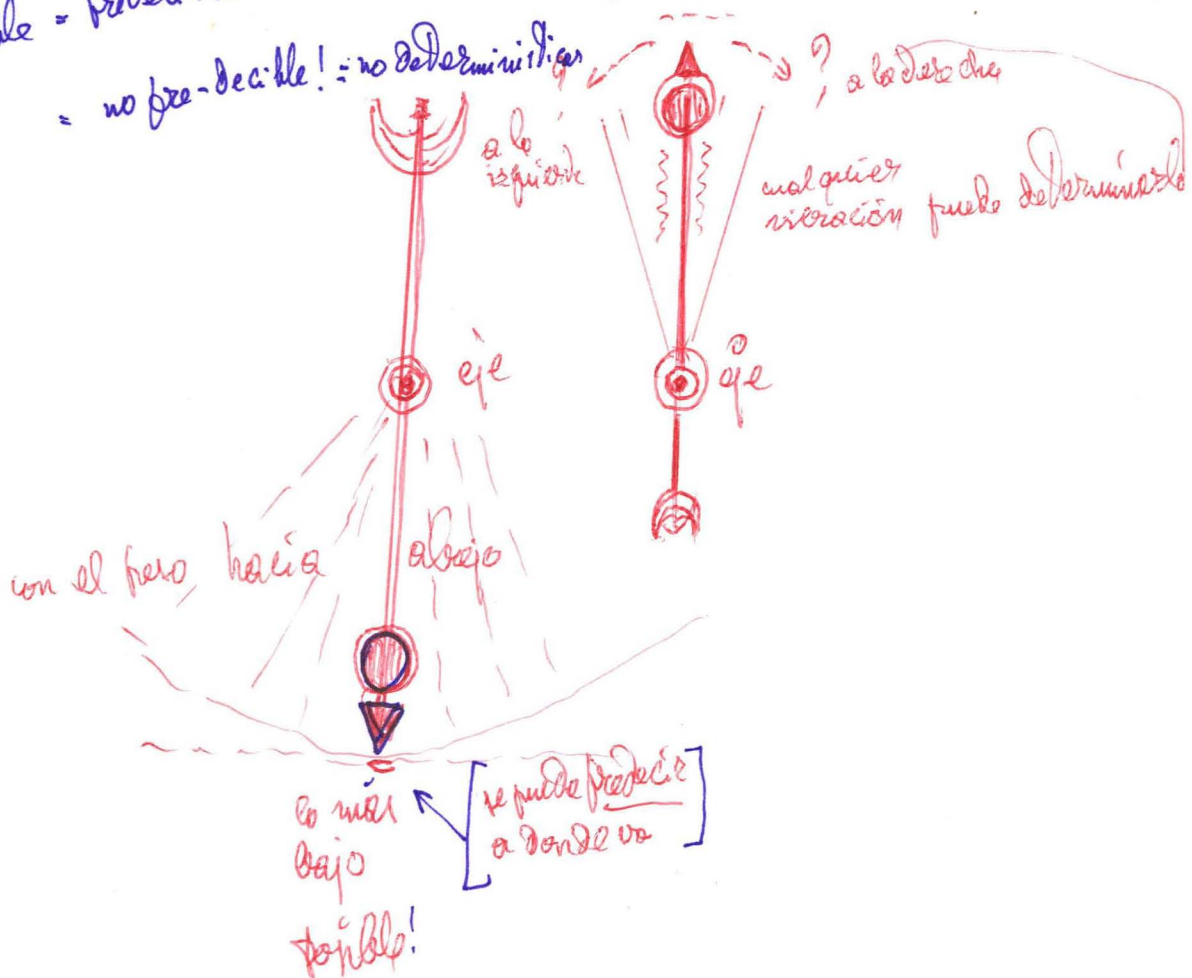 = no pre-decible! = no determinísticas
? a la derecha
a la
izquierda
cualquier
vibración puede determinarlo
eje
eje
con el peso hacia abajo
lo más
bajo
posible!
[se puede predecir
a donde va]